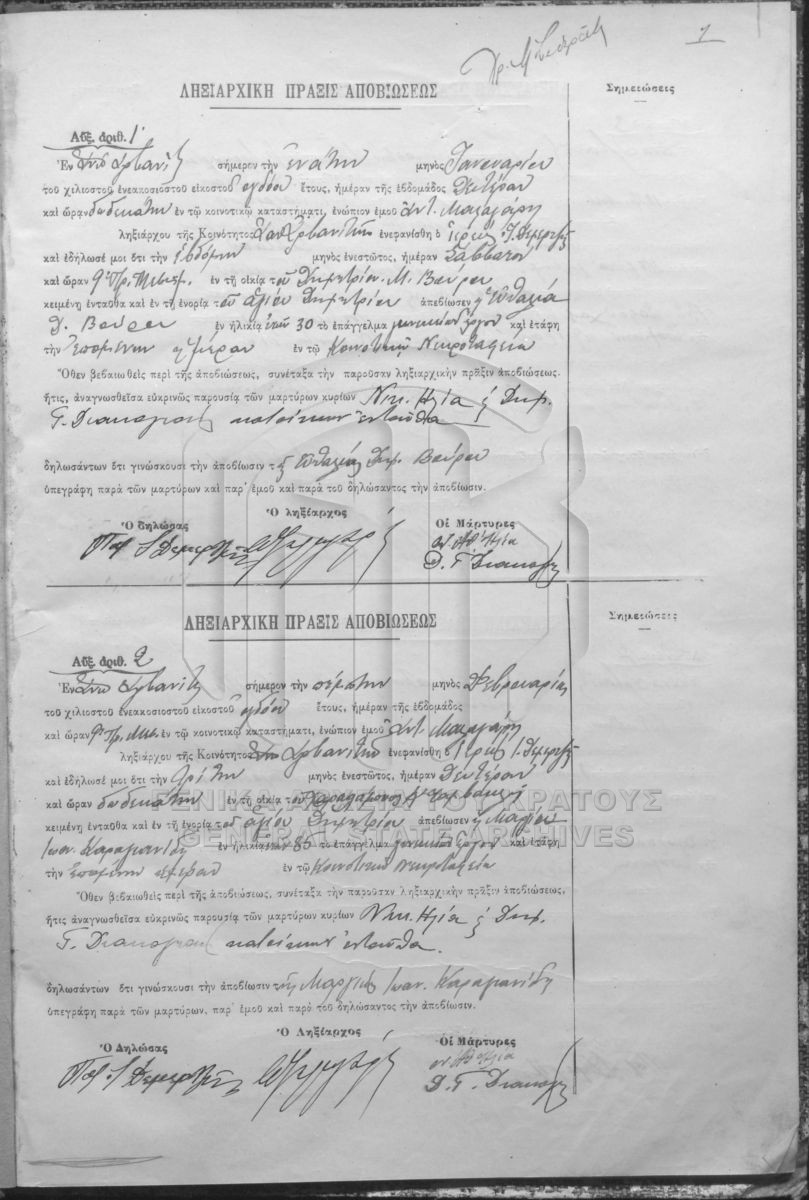 1
ΛΗΞΙΑΡΧΙΚΗ ΠΡΑΞΙΣ ΑΠΟΒΙΩΣΕΩΣ
Σημειώσεις
Αὔξ. ἀριθ. 1
Ἐν Ἄνω Ἀρβανιτ σήμερον τὴν ἐνάτην μηνὸς Ἰανουαρίου
τοῦ χιλιοστοῦ ἐνεακοσιοστοῦ εἰκοστοῦ ὀγδόου ἔτους, ἡμέραν τῆς ἑβδομάδος Δευτέραν
καὶ ὥραν δωδεκάτην ἐν τῷ κοινοτικῷ καταστήματι, ἐνώπιον ἐμοῦ Ἀντ.
ληξιάρχου τῆς Κοινότητος Ἄνω Ἀρβανιτ ἐνεφανίσθη ὁ Ἱερεὺς
καὶ ἐδήλωσέ μοι ὅτι τὴν ἑβδόμην μηνὸς ἐνεστῶτος, ἡμέραν Σάββατον
καὶ ὥραν 9 πρ. μεσημ. ἐν τῇ οἰκίᾳ τοῦ Δημητρίου Μ. Βούρου
κειμένῃ ἐνταῦθα καὶ ἐν τῇ ἐνορίᾳ τοῦ ἁγίου Δημητρίου ἀπεβίωσεν ἡ Εὐθαλία
Δ. Βούρου ἐν ἡλικίᾳ ἐτῶν 30 τὸ ἐπάγγελμα γυναικείων ἔργων καὶ ἐτάφη
τὴν ἑπομένην ἡμέραν ἐν τῷ Κοινοτικῷ Νεκροταφείῳ
Ὅθεν βεβαιωθεὶς περὶ τῆς ἀποβιώσεως, συνέταξα τὴν παροῦσαν ληξιαρχικὴν πρᾶξιν ἀποβιώσεως,
ἥτις, ἀναγνωσθεῖσα εὐκρινῶς παρουσίᾳ τῶν μαρτύρων κυρίων Νικ. Ἠλία & Δημ.
Γ. Διακογιαν κατοίκων ἐνταῦθα
δηλωσάντων ὅτι γινώσκουσι τὴν ἀποβίωσιν τῆς Εὐθαλίας Δημ. Βούρου
ὑπεγράφη παρὰ τῶν μαρτύρων καὶ παρ' ἐμοῦ καὶ παρὰ τοῦ δηλώσαντος τὴν ἀποβίωσιν.
Ὁ δηλώσας Ὁ ληξίαρχος Οἱ Μάρτυρες
Ἠλία
Δ. Γ.
ΛΗΞΙΑΡΧΙΚΗ ΠΡΑΞΙΣ ΑΠΟΒΙΩΣΕΩΣ
Σημειώσεις
Αὔξ. ἀριθ. 2
Ἐν Ἄνω Ἀρβανιτ σήμερον τὴν πέμπτην μηνὸς Φεβρουαρίου
τοῦ χιλιοστοῦ ἐνεακοσιοστοῦ εἰκοστοῦ ὀγδόου ἔτους, ἡμέραν τῆς ἑβδομάδος
καὶ ὥραν 9 πρ. μεσ. ἐν τῷ κοινοτικῷ καταστήματι, ἐνώπιον ἐμοῦ Ἀντ.
ληξιάρχου τῆς Κοινότητος Ἄνω Ἀρβανιτ ἐνεφανίσθη ὁ Ἱερεὺς
καὶ ἐδήλωσέ μοι ὅτι τὴν τρίτην μηνὸς ἐνεστῶτος, ἡμέραν Δευτέραν
καὶ ὥραν δωδεκάτην ἐν τῇ οἰκίᾳ τοῦ
ΓΕΝΙΚΑ ΑΡΧΕΙΑ ΤΟΥ ΚΡΑΤΟΥΣ
κειμένῃ ἐνταῦθα καὶ ἐν τῇ ἐνορίᾳ τοῦ ἁγίου Δημητρίου ἀπεβίωσεν ἡ
GENERAL STATE ARCHIVES
Ἰωάν. Καραμανίδη ἐν ἡλικίᾳ ἐτῶν 85 τὸ ἐπάγγελμα γυναικείων ἔργων καὶ ἐτάφη
τὴν ἑπομένην ἡμέραν ἐν τῷ Κοινοτικῷ νεκροταφείῳ
Ὅθεν βεβαιωθεὶς περὶ τῆς ἀποβιώσεως, συνέταξα τὴν παροῦσαν ληξιαρχικὴν πρᾶξιν ἀποβιώσεως,
ἥτις ἀναγνωσθεῖσα εὐκρινῶς παρουσίᾳ τῶν μαρτύρων κυρίων Νικ. Ἠλία & Δημ.
Γ. Διακογιαν κατοίκων ἐνταῦθα.
δηλωσάντων ὅτι γινώσκουσι τὴν ἀποβίωσιν τῆς Ἰωάν. Καραμανίδη
ὑπεγράφη παρὰ τῶν μαρτύρων, παρ' ἐμοῦ καὶ παρὰ τοῦ δηλώσαντος τὴν ἀποβίωσιν.
Ὁ Δηλώσας Ὁ Ληξίαρχος Οἱ Μάρτυρες
Ἠλία
Δ. Γ.